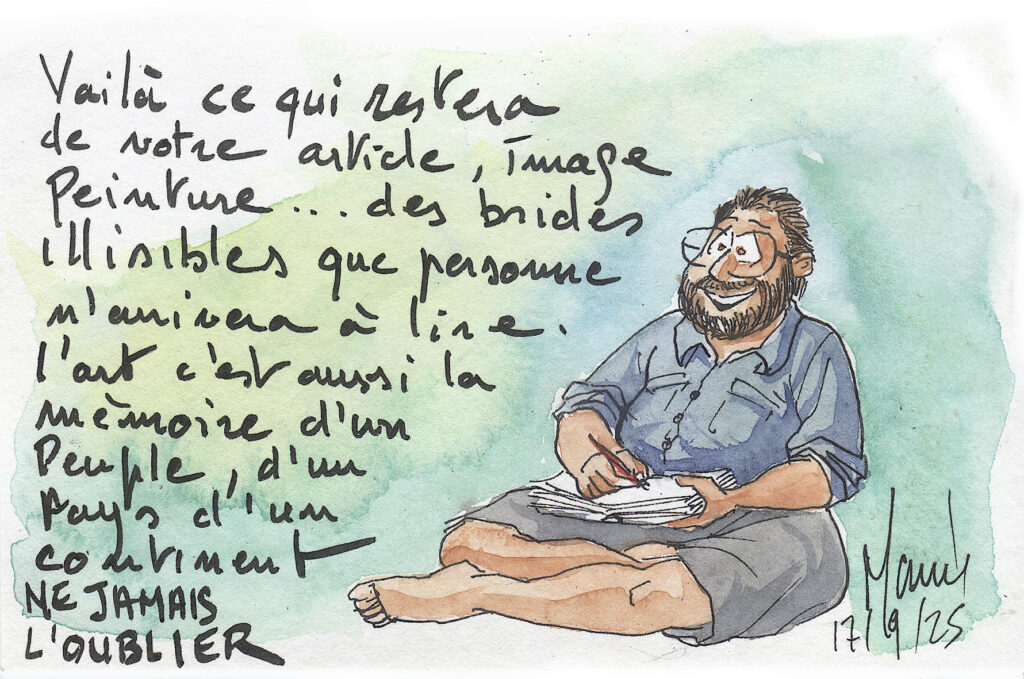 Voilà ce qui restera
de votre article, image
Peinture... des brides
illisibles que personne
n'arrivera à lire.
l'art c'est aussi la
mèmoire d'un
Peuple, d'un
Pays d'un
continent
NE JAMAIS
L'OUBLIER
17/9/25